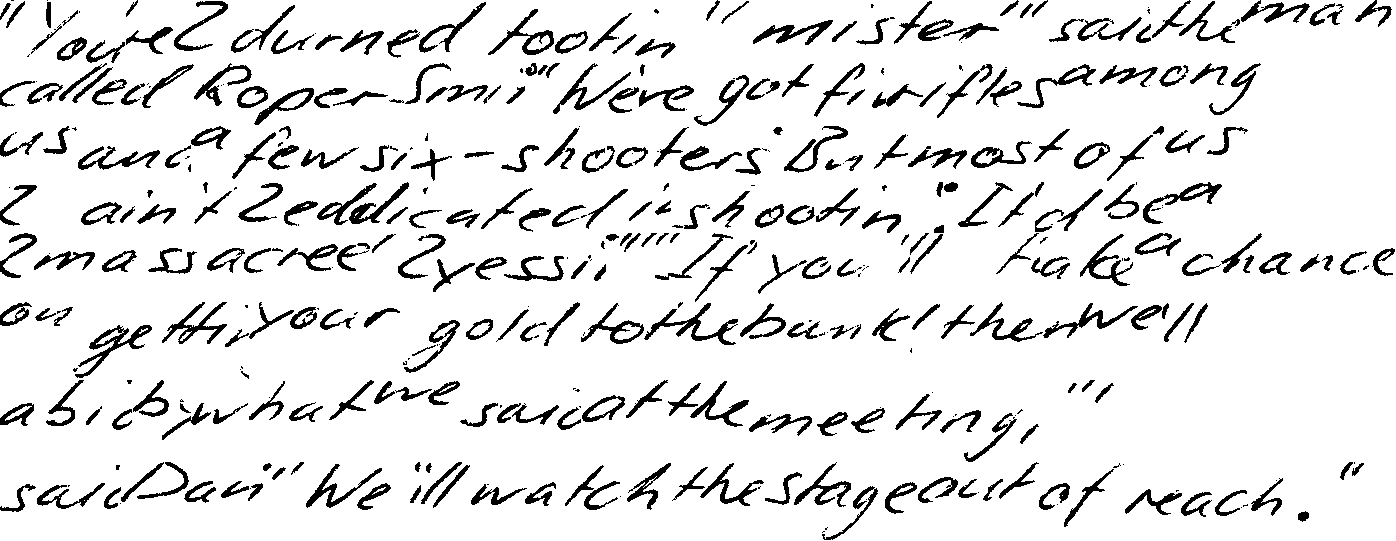 "You're durned tootin" mister" said the man
called Roper Smii" "We've got fiv rifles among
us and a few six-shooters But most of us
ain't dedicated in shootin". It'd be a
massacree yessii""" If you'll take a chance
on gettin your gold to the bank' then we'll
abid by what we said at the meeting,"'
said Dan" We'll watch the stage out of reach."